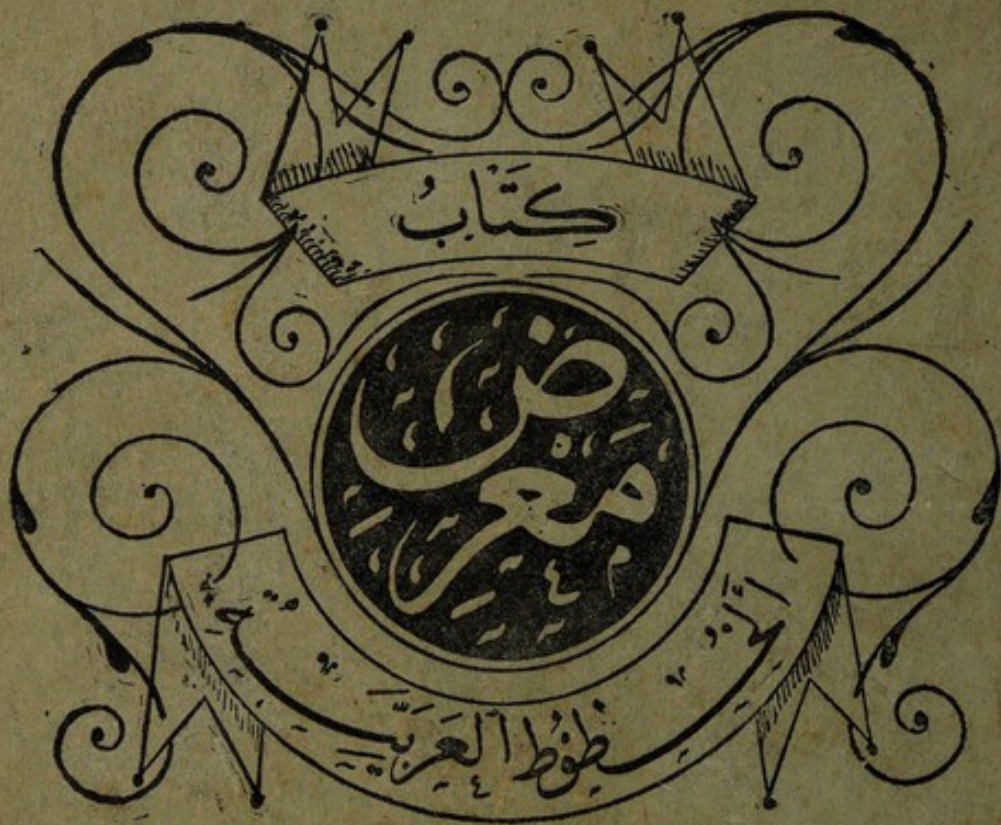 كِتَابُ
مَعْرِض
الخُطُوْطِ العَرَبِيَّة